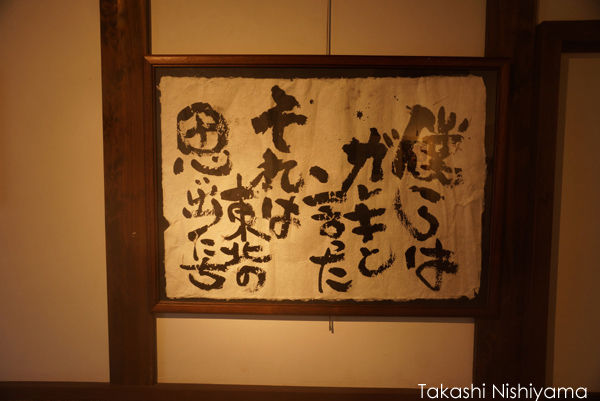 僕らは
ガキと
言った
それは
東北の
思い出たち
Takashi Nishiyama